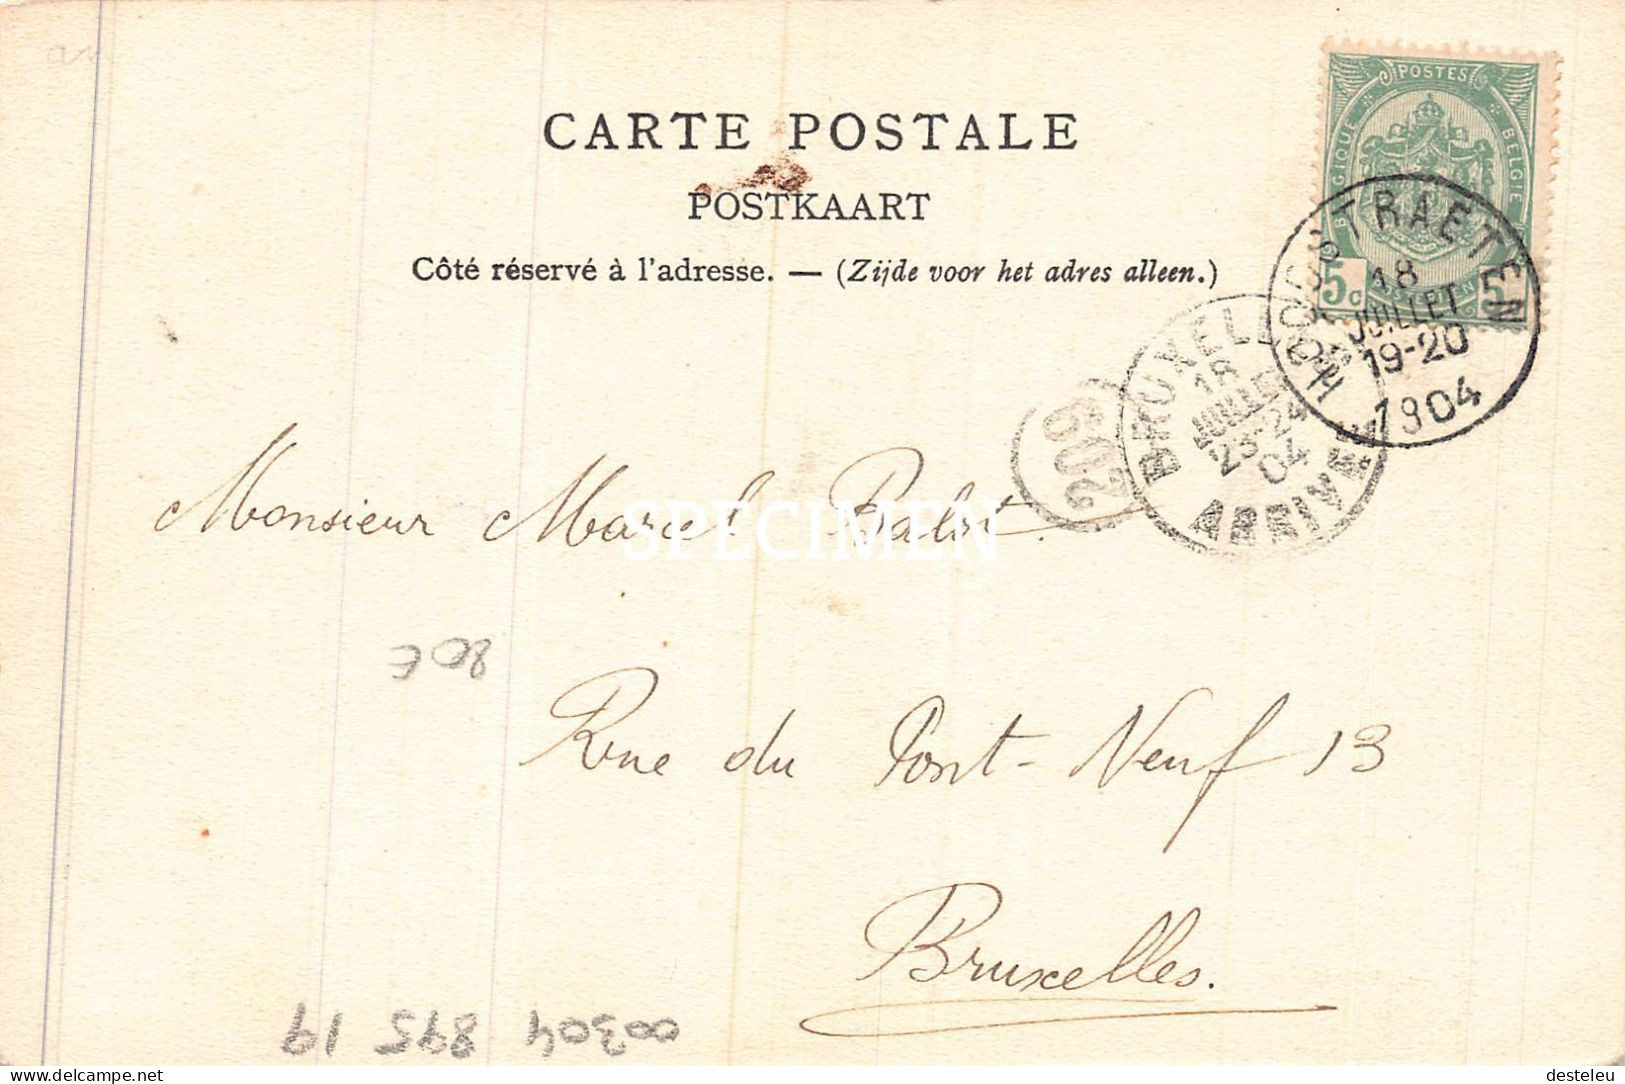 CARTE POSTALE
POSTKAART
Côté réservé à l'adresse. — (Zijde voor het adres alleen.)
POSTES
BELGIQUE BELGIE
5c 5c
HOOGSTRAETEN
18
JUILLET
19-20
1904
BRUXELLES
18
JUILLET
23-24
04
ARRIVEE
209
Monsieur Marcel
SPECIMEN
Rue du Pont-Neuf 13
Bruxelles.
80€
00304 895 19
desteleu